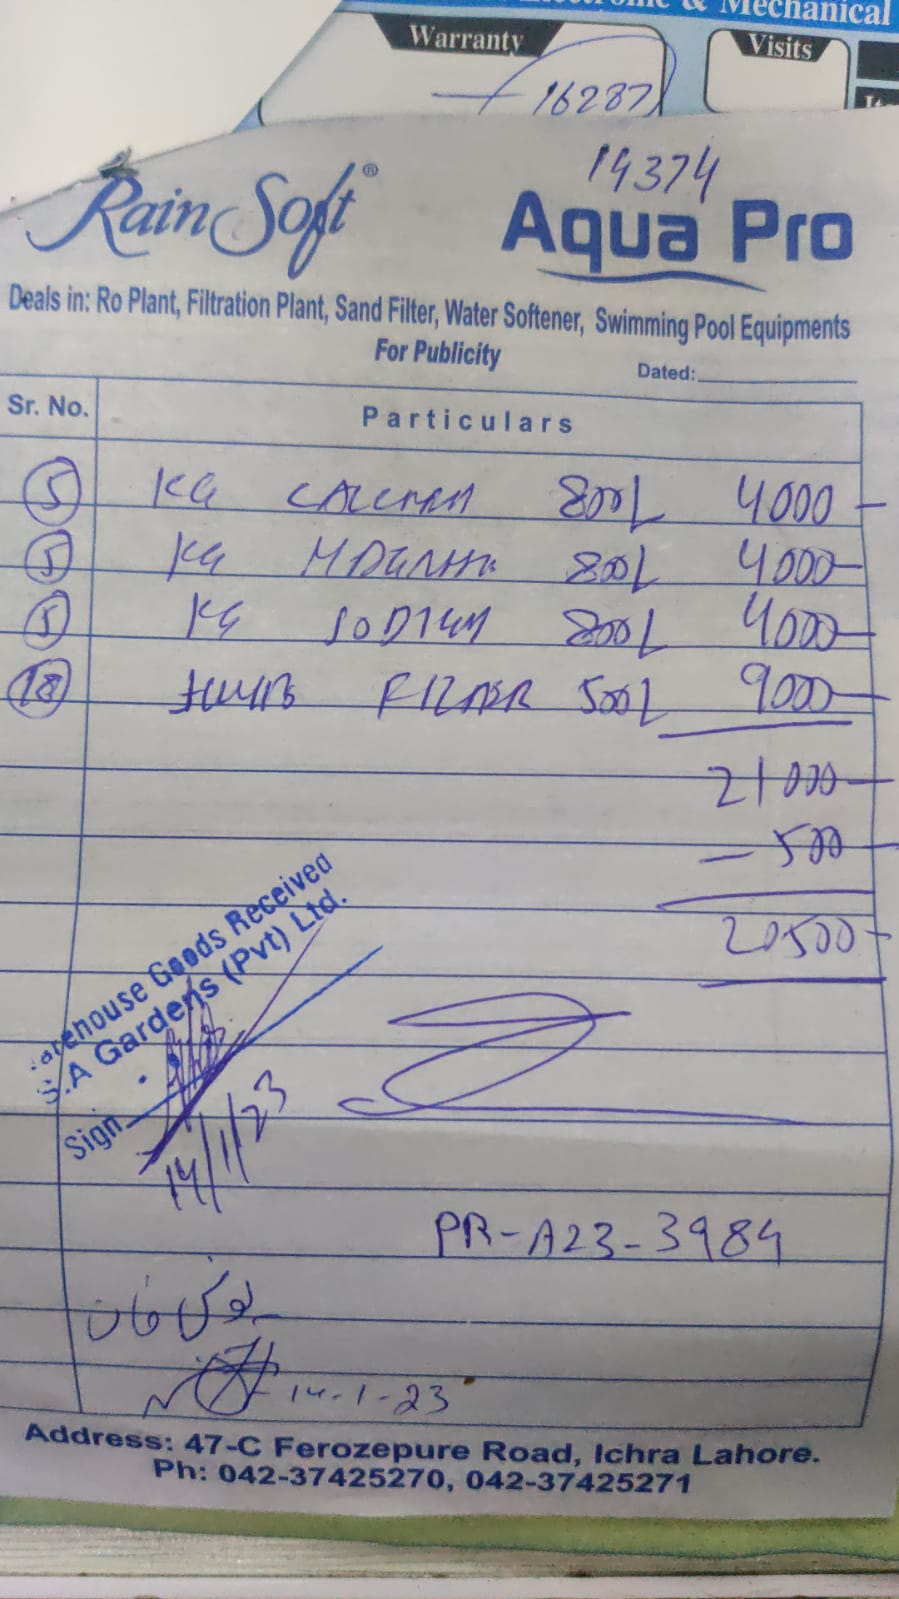 & Mechanical
Warranty
Visits
16287
14374
Rain Soft®
Aqua Pro
Deals in: Ro Plant, Filtration Plant, Sand Filter, Water Softener, Swimming Pool Equipments
For Publicity
Dated:
Sr. No. Particulars
5 KG 800/ 4000
5 KG 800/ 4000
5 KG SODIUM 800/ 4000
18 FILTER 500/ 9000
21000
- 500
20500
Warehouse Goods Received
S.A Gardens (Pvt) Ltd.
Sign
14/1/23
PR-A23-3984
خان
14-1-23
Address: 47-C Ferozepure Road, Ichra Lahore.
Ph: 042-37425270, 042-37425271